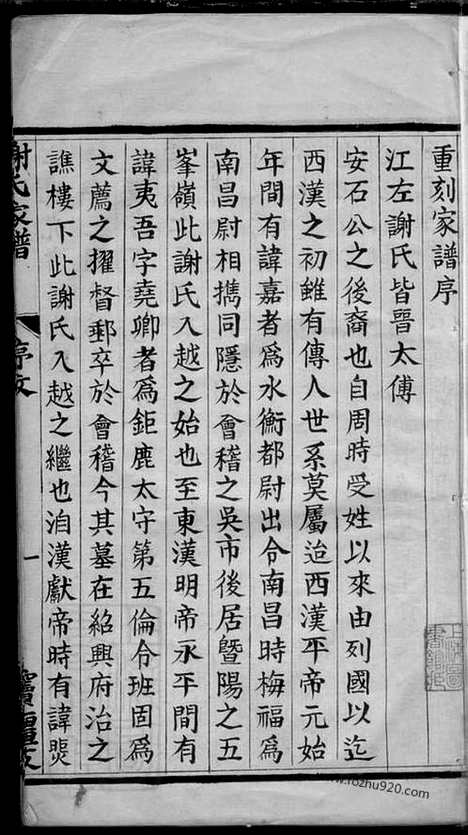 重刻家譜序
江左謝氏皆晉太傅
安石公之後裔也自周時受姓以來由列國以迄
西漢之初雖有傳人世系莫屬迨西漢平帝元始
年間有諱嘉者爲水衡都尉出令南昌時梅福爲
南昌尉相擕同隱於會稽之吳市後居暨陽之五
峯嶺此謝氏入越之始也至東漢明帝永平間有
諱夷吾字堯卿者爲鉅鹿太守第五倫令班固爲
文薦之擢督郵卒於會稽今其墓在紹興府治之
譙樓下此謝氏入越之繼也洎漢獻帝時有諱煚
謝氏家譜
序文
一
寶
www.rozhu920.com